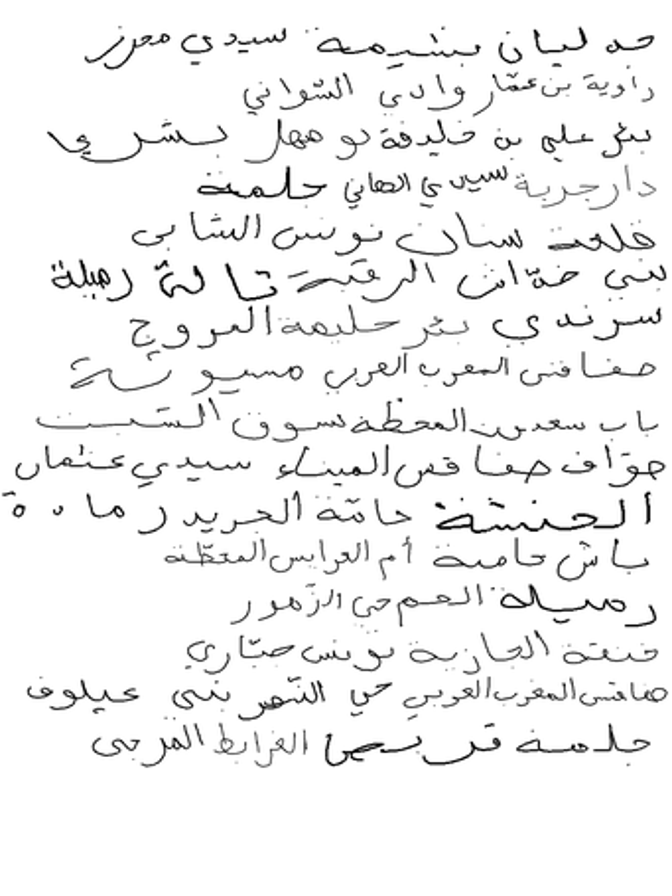 حد ليان بشيمة سيدي محرز
زاوية بن عمّار وادي الشواني
بئر علي بن خليفة بو مهل بشري
دار جربة سيدي الهاني جلمة
قلعة سنان تونس الشابي
بني خدّاش الرقبة تالة رميلة
سرندي بئر حليمة المروج
صفاقس المغرب العربي
باب سعدون المحطّة سوق السّبت
جوّاف صفاقس الميناء سيدي عثمان
الحنشة حامّة الجريد رمادة
باش حامبة أم العرايس المحطّة
رميلة العم حي الزّهور
خنقة الجازية تونس جبّاري
صفاقس المغرب العربي حي النّصر بني عيلوف
جلمة قربص الغرابط الفرجي